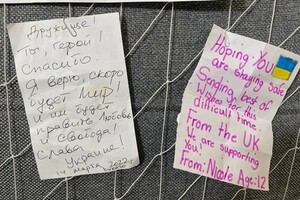 Дружище!
Ты, герой!
Спасибо
Я верю, скоро
будет Мир!
и им будет
править Любовь
и Свобода!
Слава
Украине!
14 марта 2022 г
Hoping You
are staying safe
Sending best of
wishes for this
difficult time.
From the UK
We are supporting
You!
From: Nicole Age:12